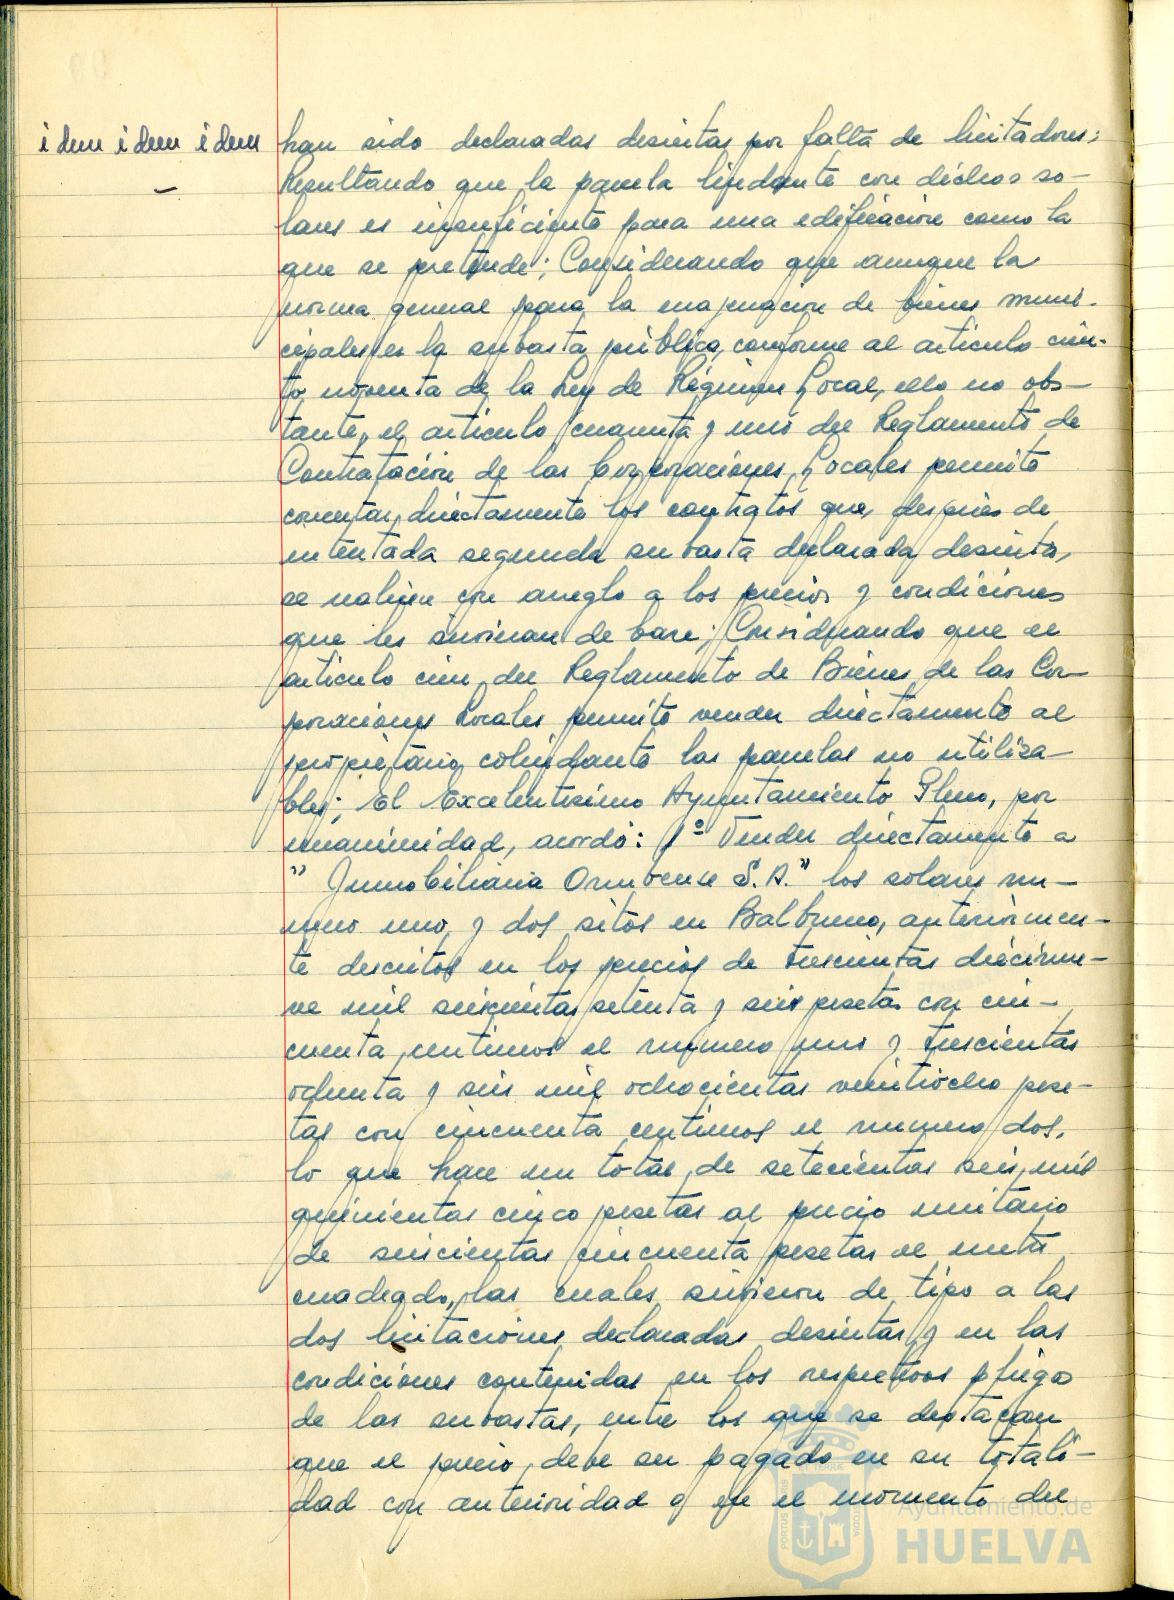 idem idem idem
han sido declaradas desiertas por falta de licitadores;
Resultando que la parcela lindante con dichos so-
lares es insuficiente para una edificación como la
que se pretende; Considerando que aunque la
norma general para la enajenación de bienes muni-
cipales es la subasta pública, conforme al articulo cien-
to noventa de la Ley de Régimen Local, ello no obs-
tante, el articulo cuarenta y uno del Reglamento de
Contratación de las Corporaciones Locales permite
concertar directamente los contratos que, después de
intentada segunda subasta declarada desierta,
se realicen con arreglo a los precios y condiciones
que les sirvieran de base; Considerando que el
articulo cien del Reglamento de Bienes de las Cor-
poraciones Locales permite vender directamente al
propietario colindante las parcelas no utiliza-
bles; El Excelentisimo Ayuntamiento Pleno, por
unanimidad, acordó: 1º Vender directamente a
" Inmobiliaria Onubense S.A." los solares nu-
mero uno y dos sitos en Balbueno, anteriormen-
te descritos en los precios de trescientas diecinue-
ve mil seiscientas setenta y seis pesetas con cin-
cuenta centimos el numero uno y trescientas
ochenta y seis mil ochocientas veintiocho pese-
tas con cincuenta centimos el numero dos,
lo que hace un total de setecientas seis mil
quinientas cinco pesetas al precio unitario
de seiscientas cincuenta pesetas el metro
cuadrado, las cuales sirvieron de tipo a las
dos licitaciones declaradas desiertas y en las
condiciones contenidas en los respectivos pliegos
de las subastas, entre los que se destacan
que el precio debe ser pagado en su totali-
dad con anterioridad o en el momento del
Ayuntamiento de
HUELVA